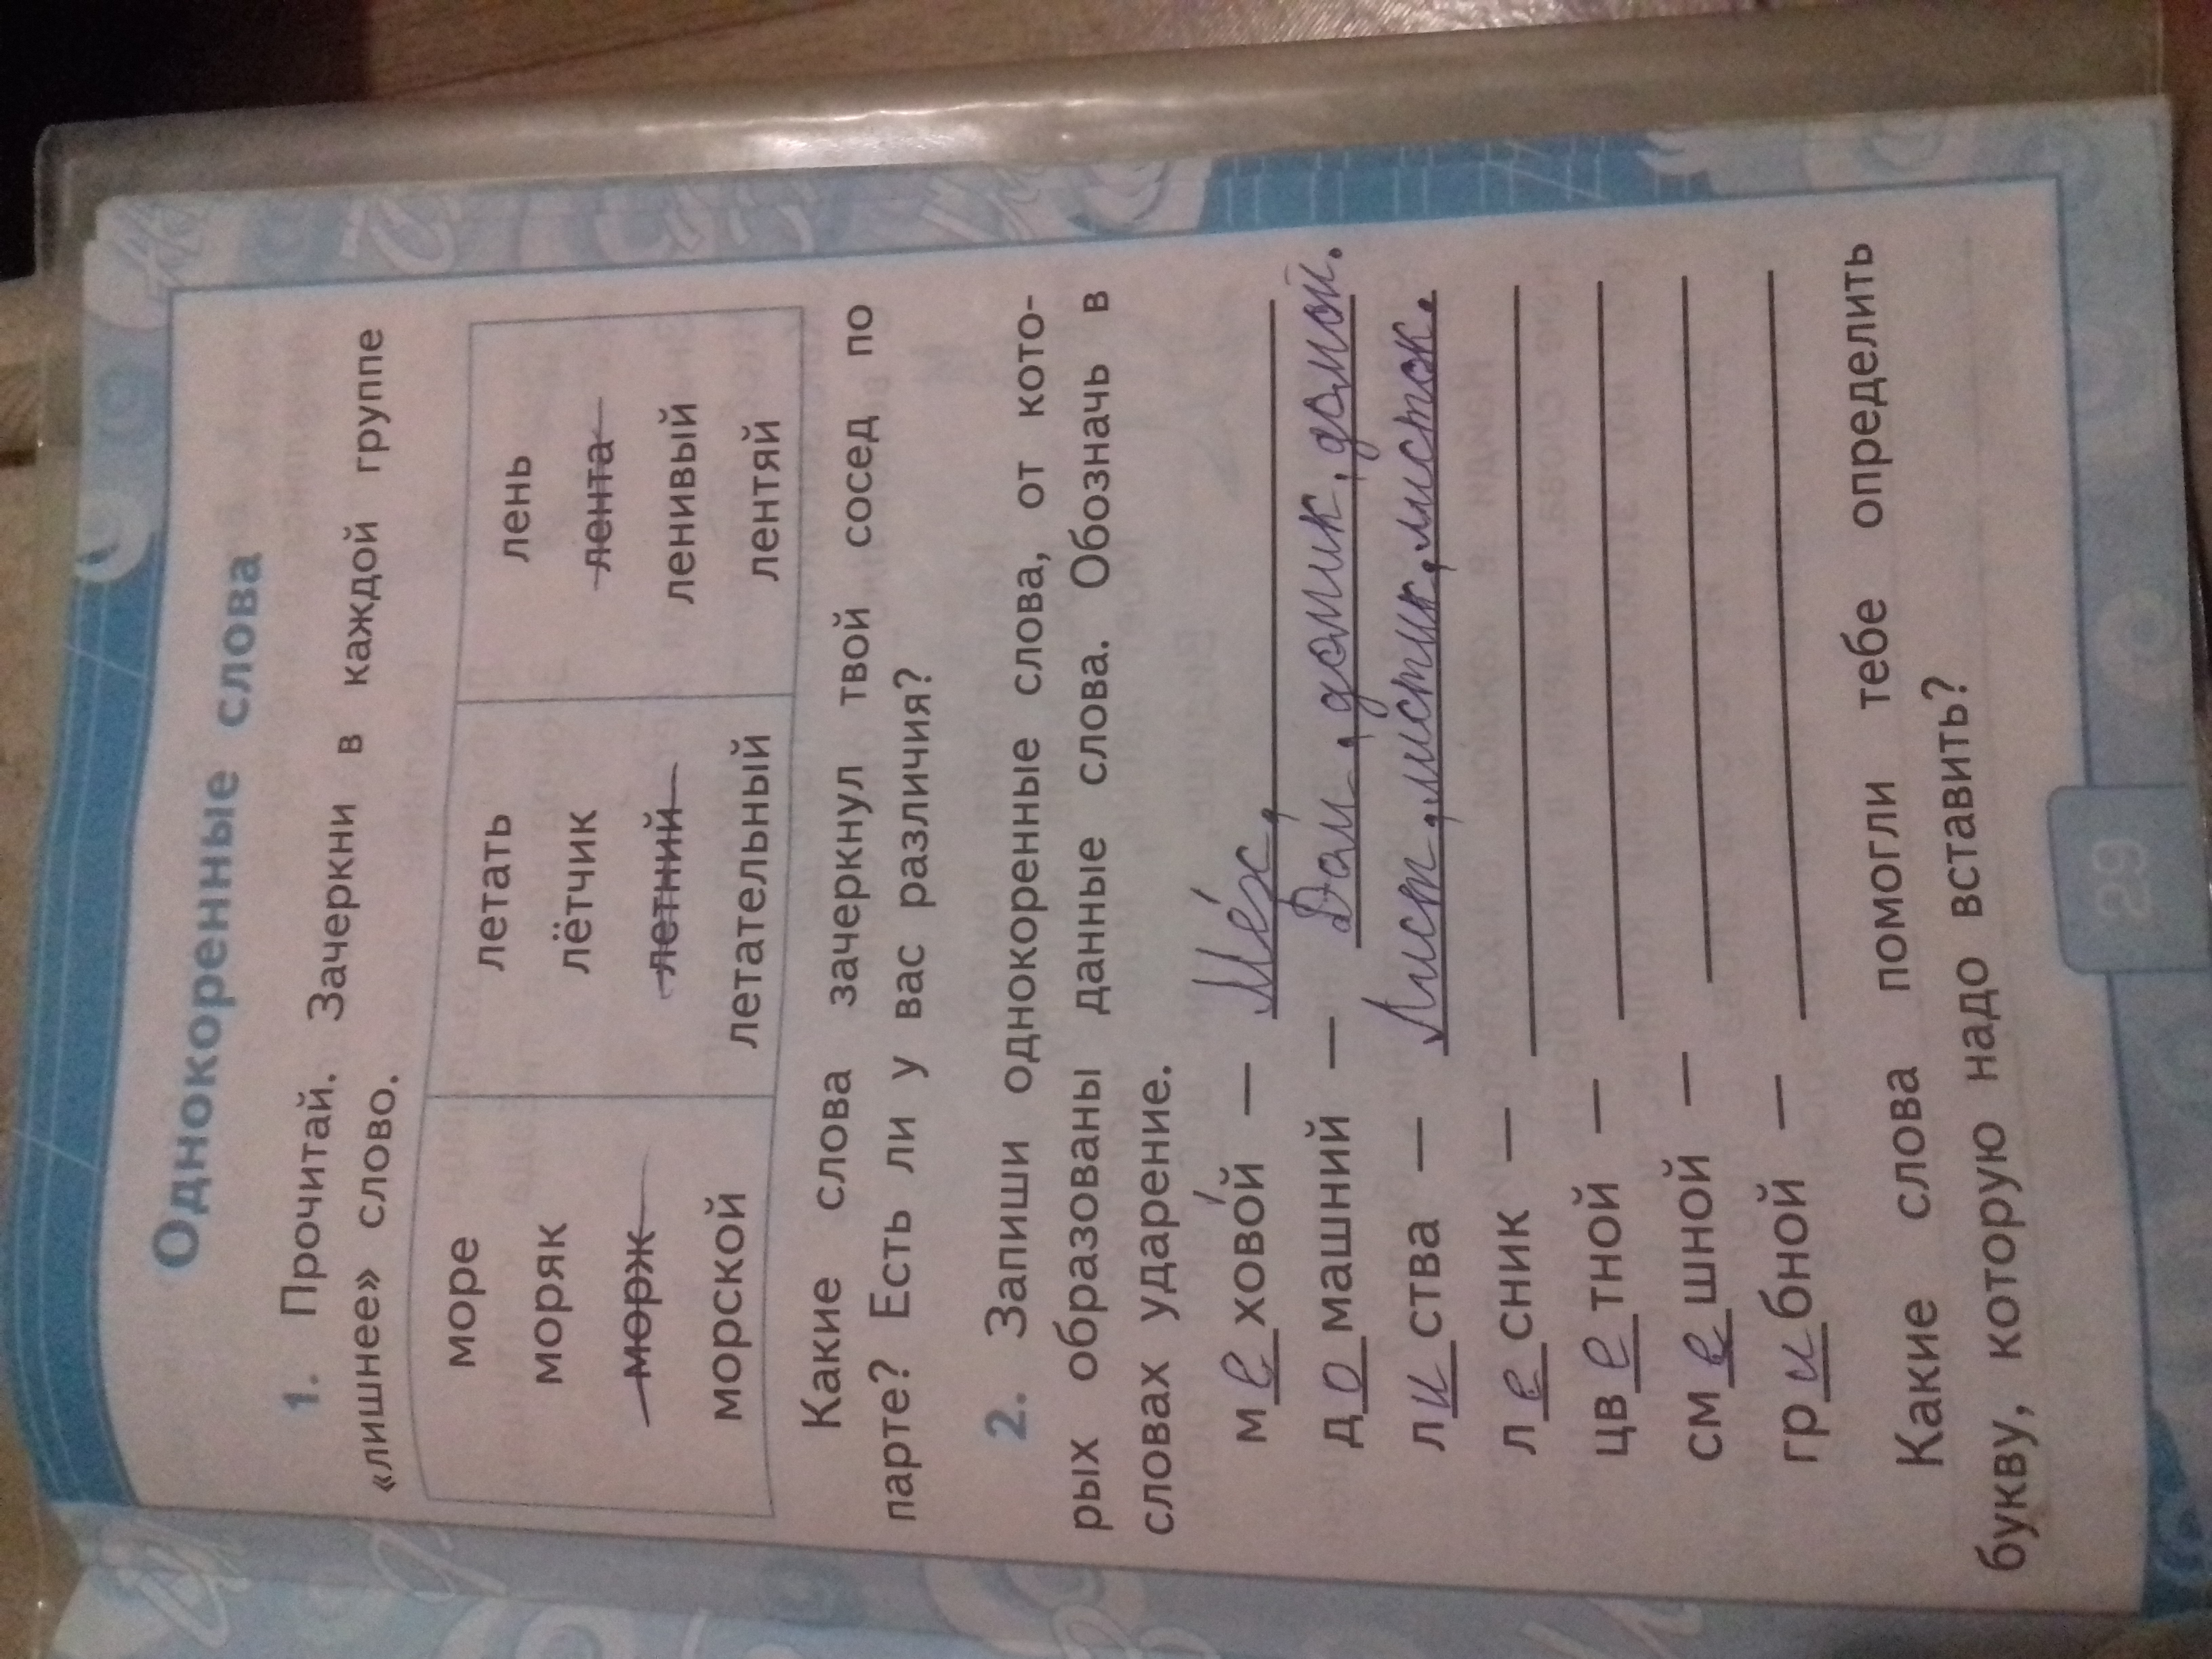 Однокоренные слова
1. Прочитай. Зачеркни в каждой группе
«лишнее» слово.
море летать лень
моряк лётчик лента
морж летний ленивый
морской летательный лентяй
Какие слова зачеркнул твой сосед по
парте? Есть ли у вас различия?
2. Запиши однокоренные слова, от кото-
рых образованы данные слова. Обозначь в
словах ударение.
мехово́й — Ме́х,
домашний — Дом, домик, домой.
листва — Лист, листик, листок.
лесник —
цветной —
смешной —
грибной —
Какие слова помогли тебе определить
букву, которую надо вставить?
29